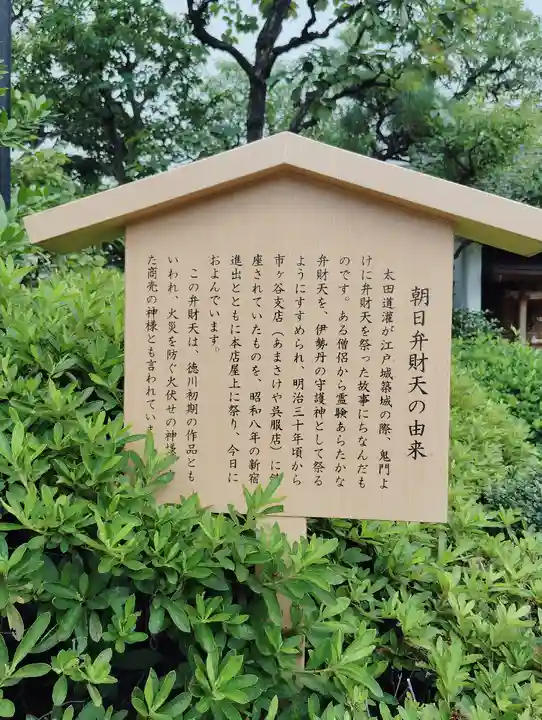 朝日弁財天の由来
太田道灌が江戸城築城の際、鬼門よ
けに弁財天を祭った故事にちなんだも
のです。ある僧侶から霊験あらたかな
弁財天を、伊勢丹の守護神として祭る
ようにすすめられ、明治三十年頃から
市ヶ谷支店(あまさけや呉服店)に
座されていたものを、昭和八年の新宿
進出とともに本店屋上に祭り、今日に
およんでいます。
この弁財天は、徳川初期の作品とも
いわれ、火災を防ぐ火伏せの神様
た商売の神様とも言われていま